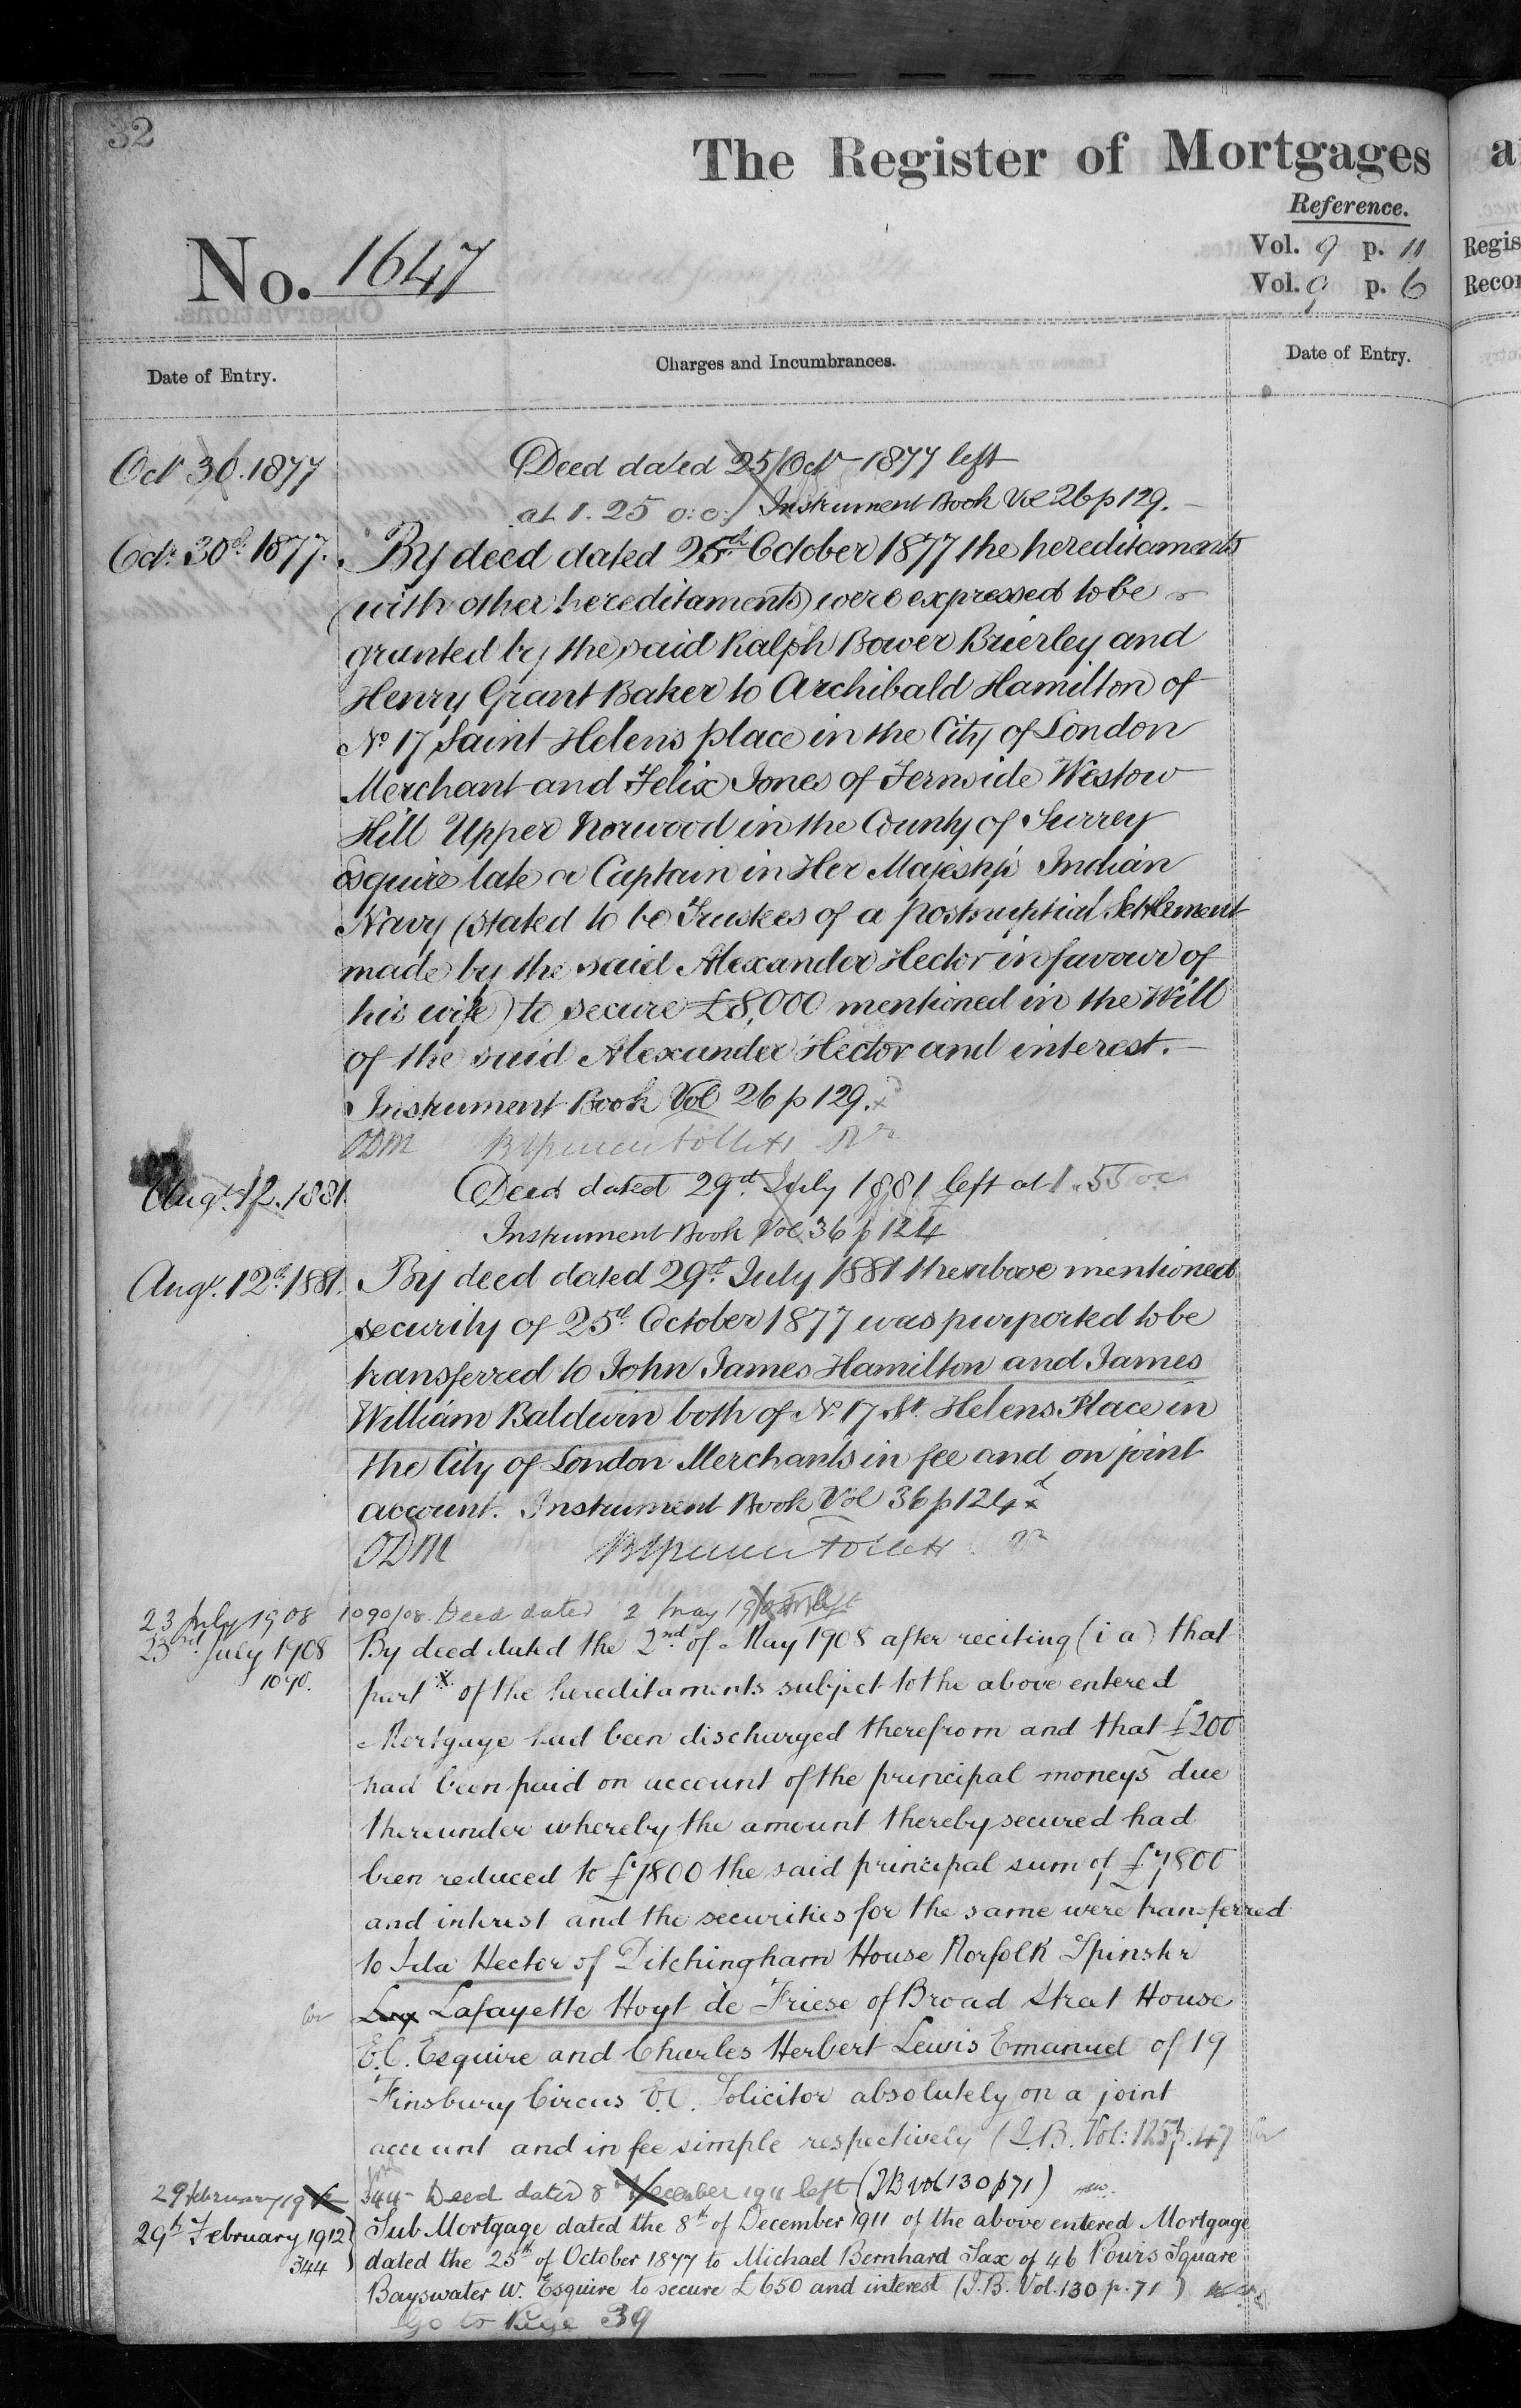 32
The Register of Mortgages
Reference.
No. 1647
Vol. 9 p. 11
Vol. 9 p. 6
Regis
Recor
Date of Entry.
Charges and Incumbrances.
Date of Entry.
Oct 30. 1877
Deed dated 25 Oct 1877 left
at 1. 25 o:c: Instrument Book Vol 26 p 129.
Oct. 30th 1877.
By deed dated 25th October 1877 the hereditaments
(with other hereditaments) were expressed to be
granted by the said Ralph Bower Brierley and
Henry Grant Baker to Archibald Hamilton of
No 17 Saint Helens place in the City of London
Merchant and Felix Jones of Fernside Westow
Hill Upper Norwood in the County of Surrey
Esquire late a Captain in Her Majesty's Indian
Navy (stated to be Trustees of a postnuptial Settlement
made by the said Alexander Hector in favour of
his wife) to secure £8,000 mentioned in the Will
of the said Alexander Hector and interest.
Instrument Book Vol 26 p 129.
ODM
Augt. 12. 1881.
Deed dated 29th July 1881 left at 1.55 oc
Instrument Book Vol 36 p 124
Augt. 12th 1881.
By deed dated 29th July 1881 the above mentioned
security of 25th October 1877 was purported to be
transferred to John James Hamilton and James
William Baldwin both of No. 17 St. Helens Place in
the City of London Merchants in fee and on joint
account. Instrument Book Vol 36 p 124
ODM
23 July 1908
1090/08. Deed dated 2 May 1908 left
23rd July 1908
1090.
By deed dated the 2nd of May 1908 after reciting (i a) that
part x of the hereditaments subject to the above entered
Mortgage had been discharged therefrom and that £200
had been paid on account of the principal moneys due
thereunder whereby the amount thereby secured had
been reduced to £7800 the said principal sum of £7800
and interest and the securities for the same were transferred
to Ida Hector of Ditchingham House Norfolk Spinster
Lafayette Hoyt de Friese of Broad Street House
E.C. Esquire and Charles Herbert Lewis Emanuel of 19
Finsbury Circus E.C. Solicitor absolutely on a joint
account and in fee simple respectively (I.B. Vol: 125 p. 47
29 february 19
344 - Deed dated 8th December 1911 left (IB vol 130 p 71)
29th February 1912
344
Sub Mortgage dated the 8th of December 1911 of the above entered Mortgage
dated the 25th of October 1877 to Michael Bernhard Sax of 46 Powis Square
Bayswater W. Esquire to secure £650 and interest (I.B. Vol. 130 p. 71)
Go to Page 39